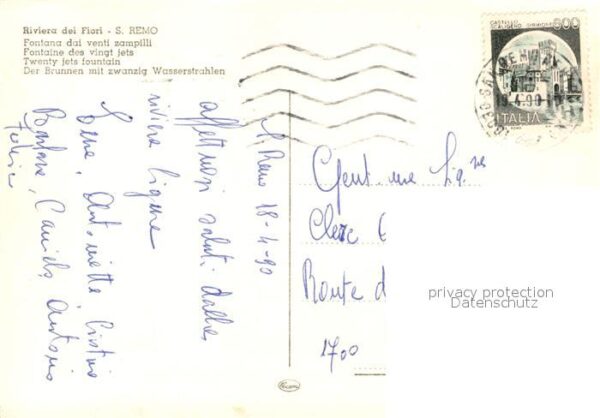 Riviera dei Fiori - S. REMO
Fontana dai venti zampilli
Fontaine des vingt jets
Twenty jets fountain
Der Brunnen mit zwanzig Wasserstrahlen
CASTELLO SCALIGERO SIRMIONE
600
ITALIA
S. Remo 18-4-90
affettuosi saluti dalla
riviera ligure
Antonietta
Daniela, Antonio
Felice
Gent.me Sig.
Clerc
Route d
1700
privacy protection
Datenschutz